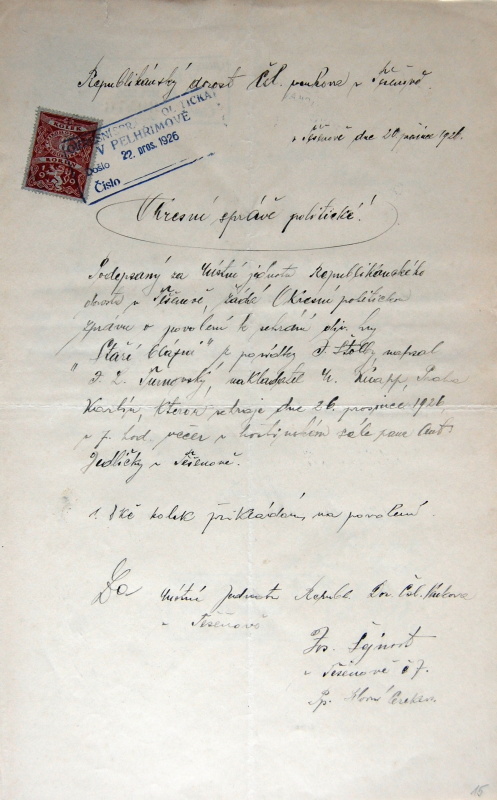 Republikánský dorost Čsl. venkova v Těšenově
v Těšenově dne 20 prosince 1926.
OL TICKÁ
V PELHŘIMOVĚ
Došlo 22. pros. 1926
Číslo
Okresní správě politické!
Podepsaný za Místní jednotu Republikánského
dorostu v Těšenově, žádá Okresní politickou
správu o povolení k sehrání div. hry
"Staří blázni" z povídky J. Štolby napsal
J. L. Turnovský, nakladatel M. Knapp, Praha
Karlín, kterou sehraje dne 26. prosince 1926
v 7. hod. večer v hostinském sále pana Ant.
Jedličky v Těšenově.
1. 8 Kč kolek přikládám na povolení.
Za Místní jednotu Republ. Dor. Čsl. Venkova
v Těšenově
Jos. Šejnost
v Těšenově č 7.
Pp. Horní Cerekev.
15